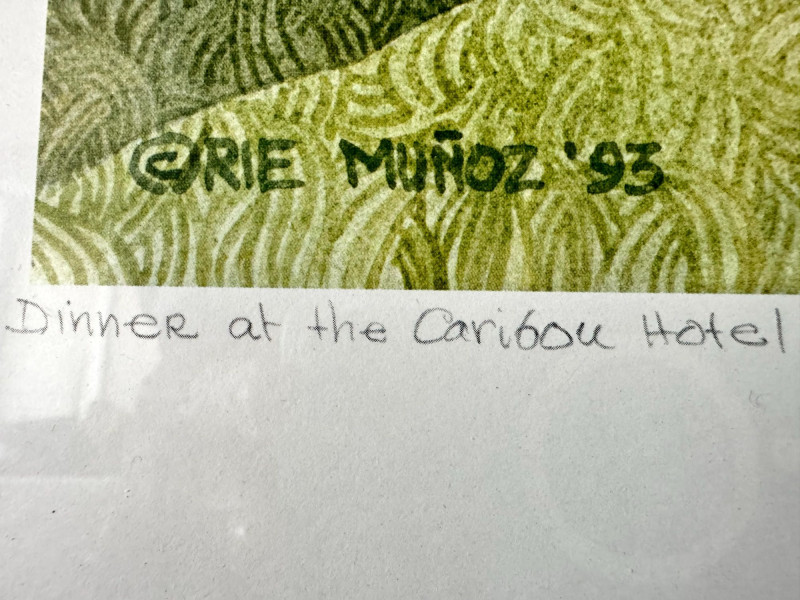 ©RIE MUÑOZ '93
DinnER at the Caribou Hotel